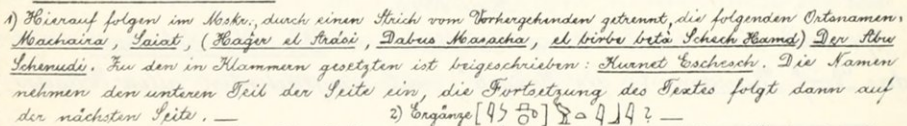 1) Hierauf folgen im Mskr., durch einen Strich vom Vorhergehenden getrennt, die folgenden Ortsnamen:
Machaira, Saiat, (Hager el Atâsi, Dabus Masacha, el birbe betâ Schech Hamd) Der Abu
Schenudi. Zu den in Klammern gesetzten ist beigeschrieben: Kurnet Eschesch. Die Namen
nehmen den unteren Teil der Seite ein, die Fortsetzung des Textes folgt dann auf
der nächsten Seite. — 2) Ergänze [ ] ? —